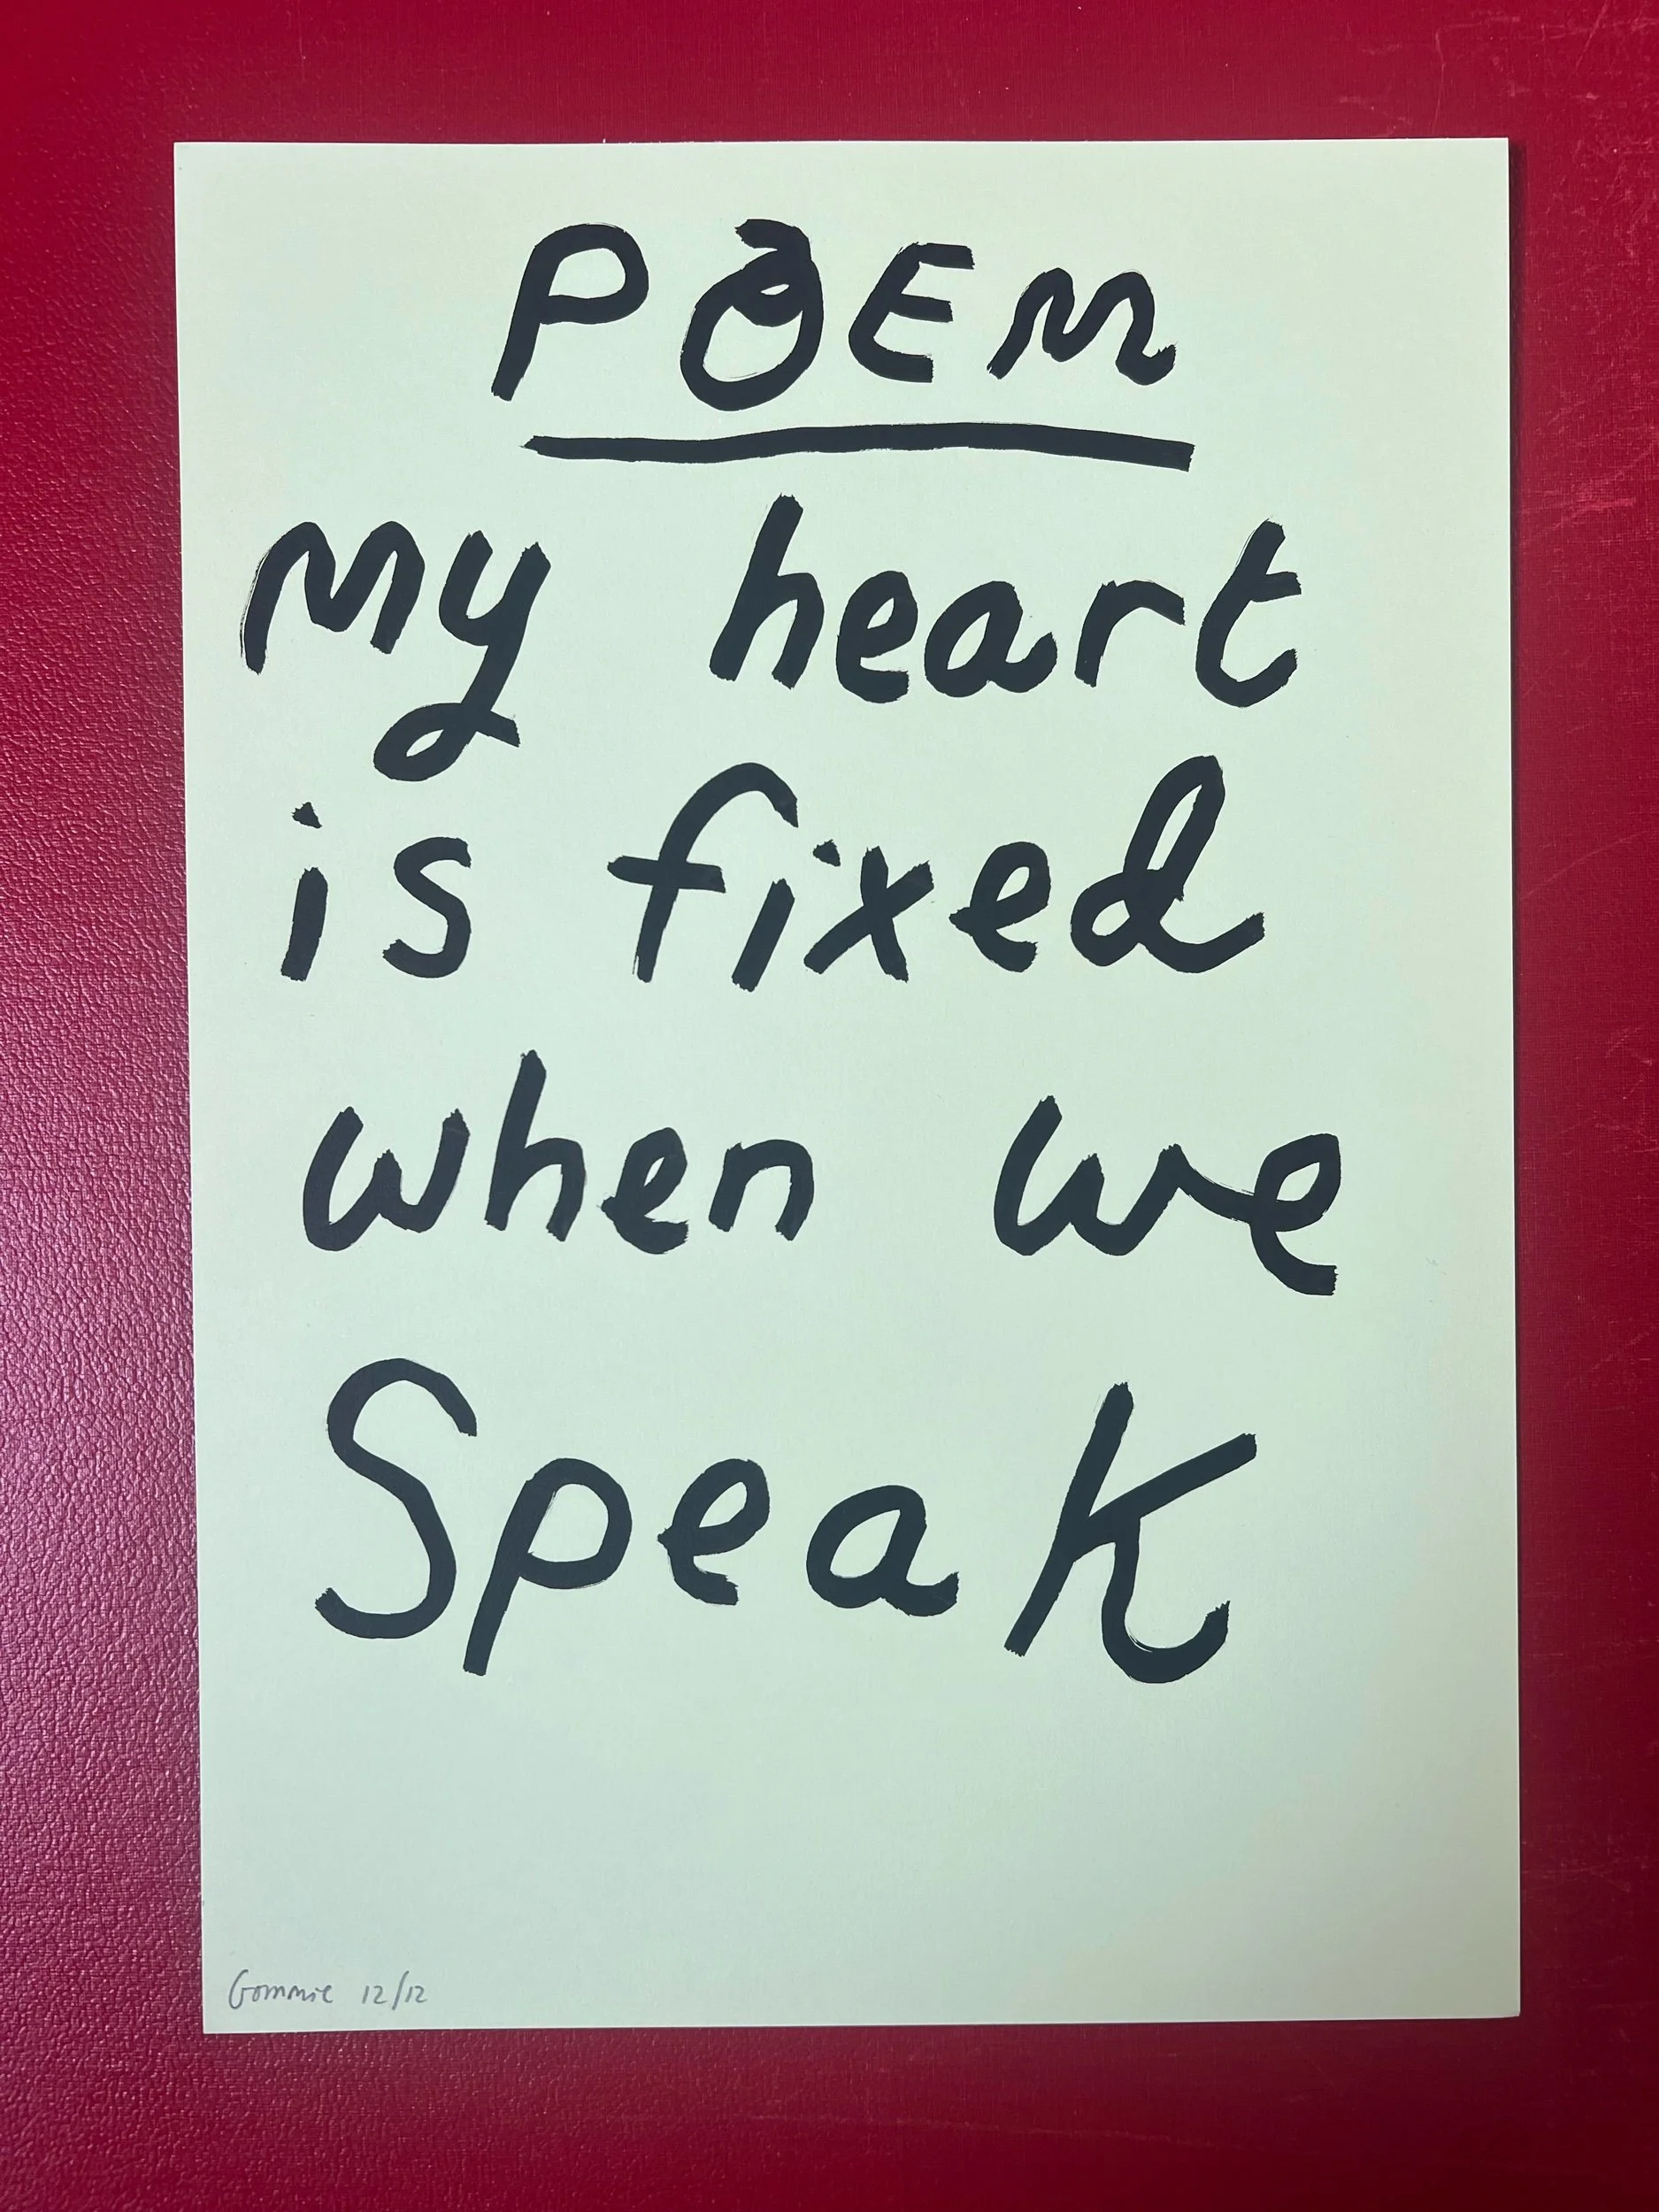 POEM
my heart
is fixed
when we
Speak
Gommie 12/12